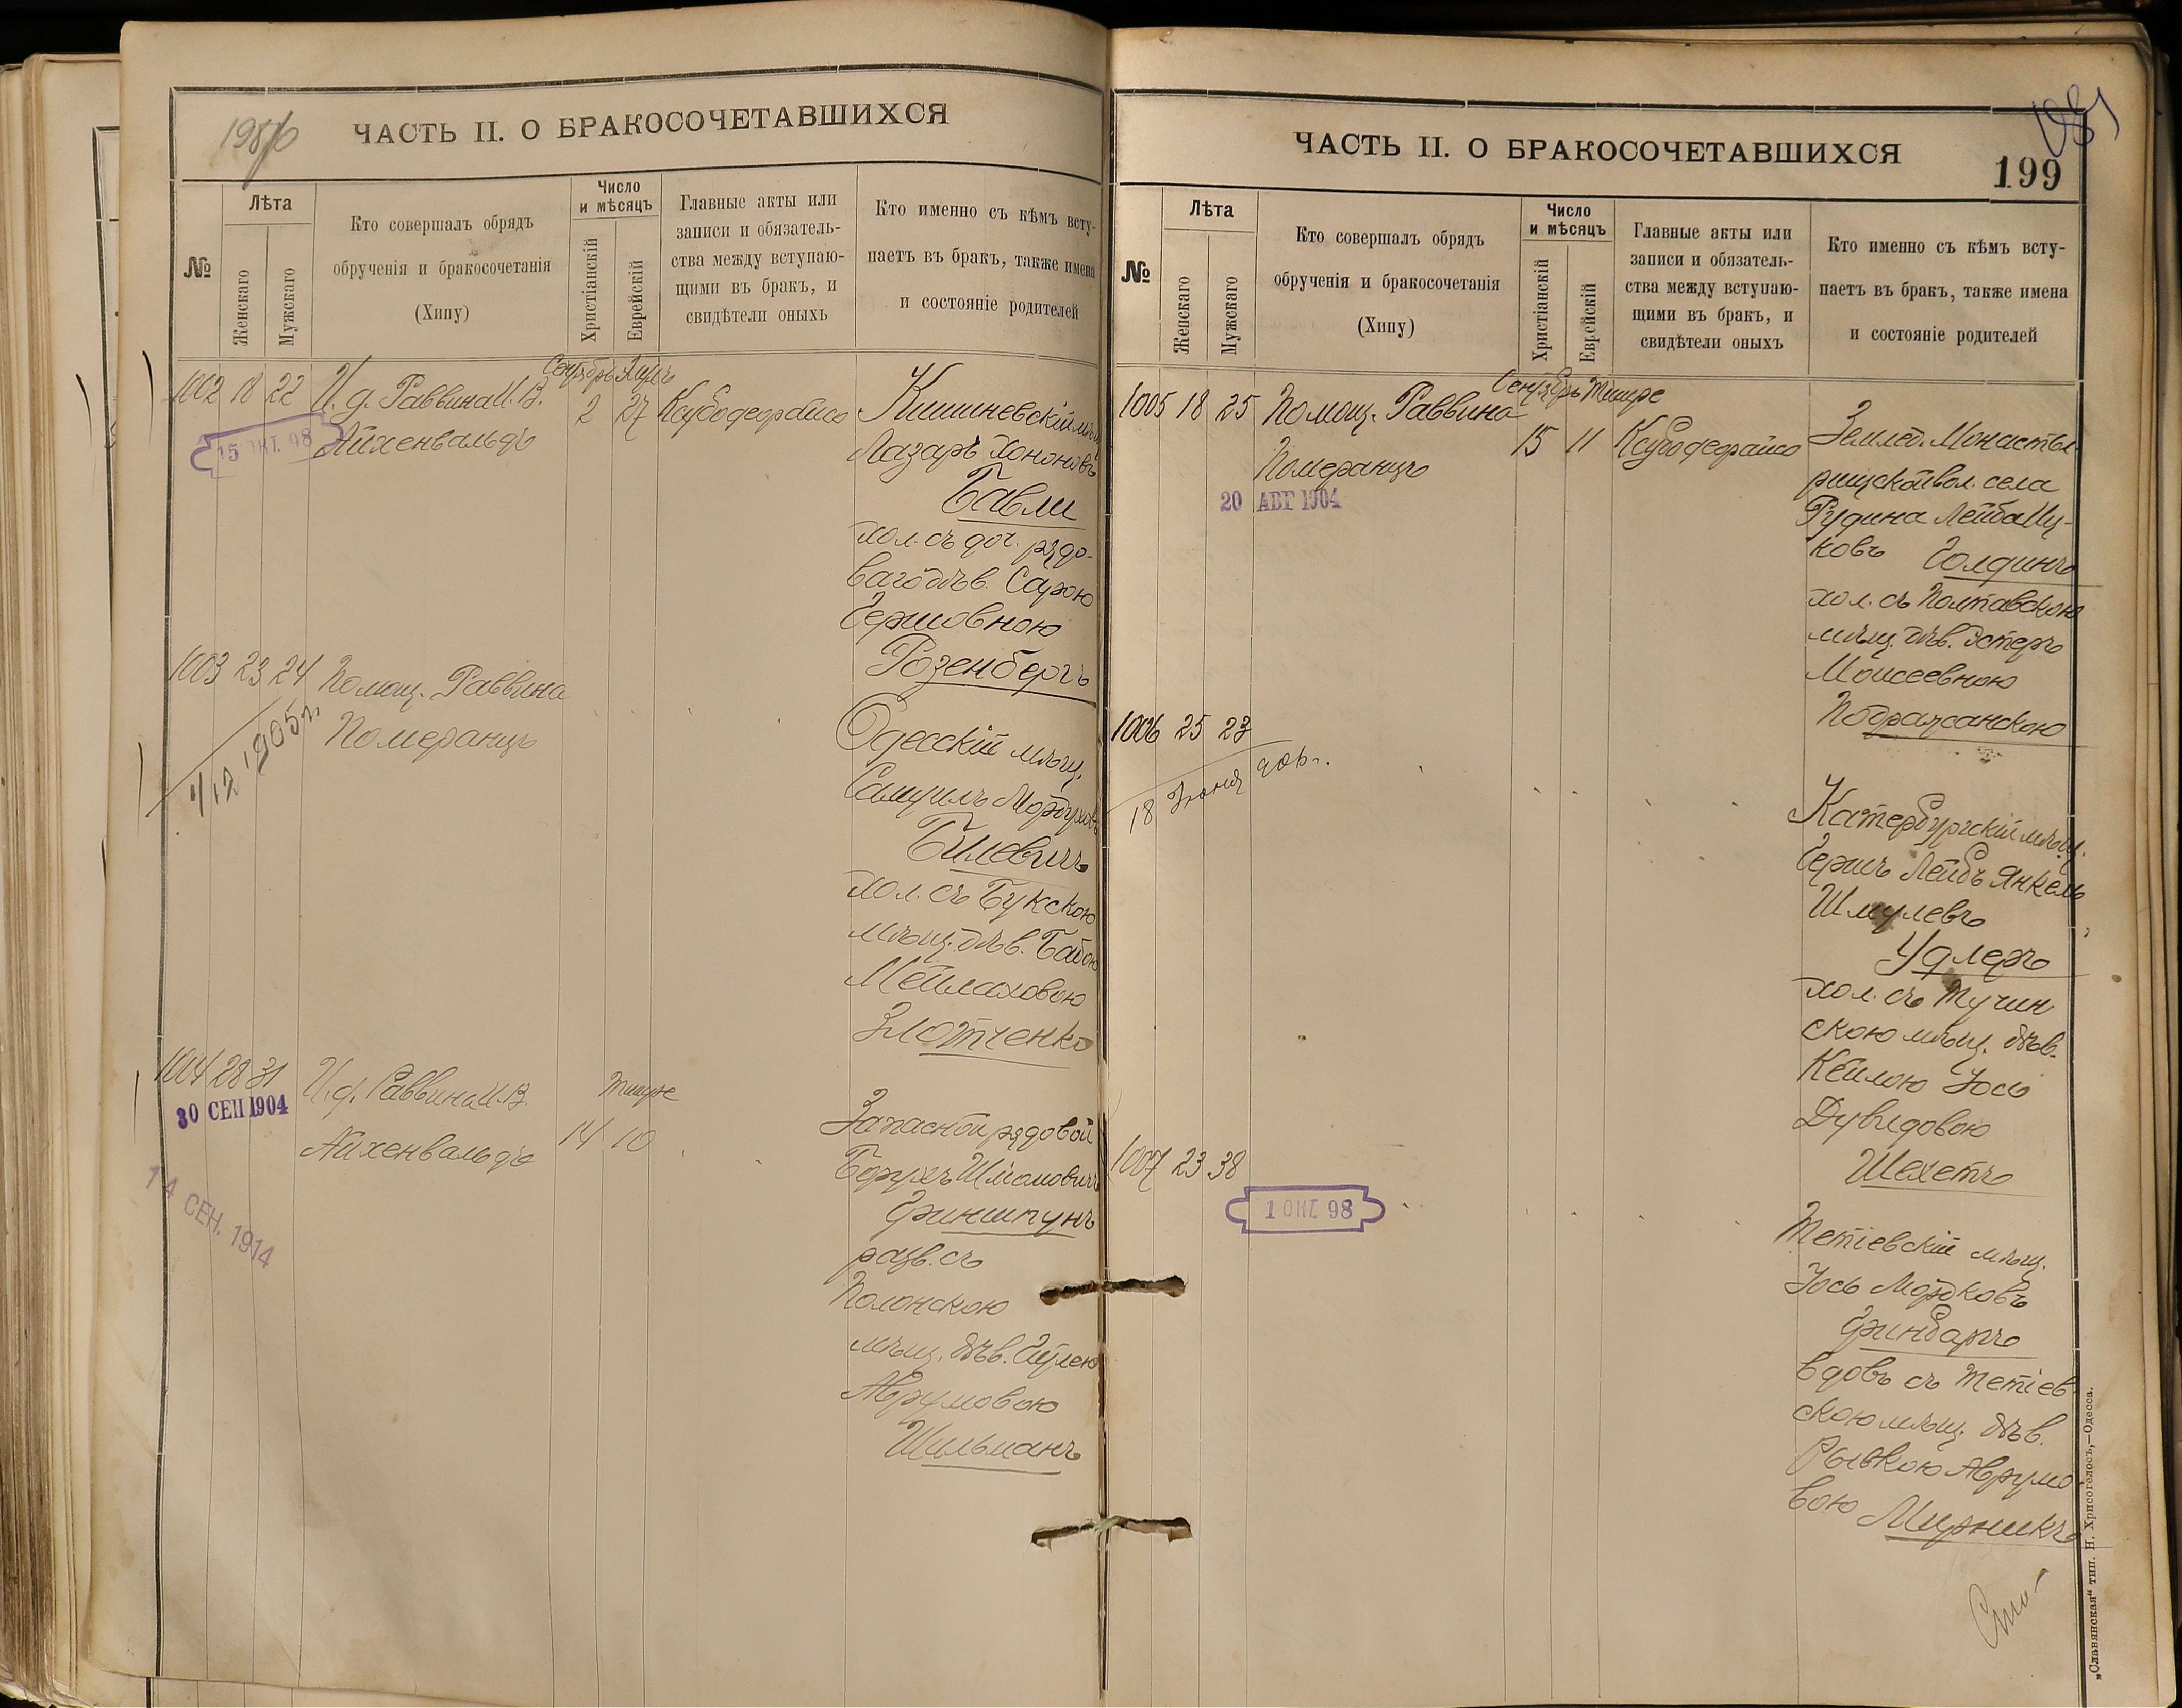 ЧАСТЬ II. О БРАКОСОЧЕТАВШИХСЯ
№
Лѣта
Женскаго
Мужскаго
Кто совершалъ обрядъ
обрученія и бракосочетанія
(Хипу)
Число
и мѣсяцъ
Христіанскій
Еврейскій
Главные акты или
записи и обязатель-
ства между вступаю-
щими въ бракъ, и
свидѣтели оныхъ
Кто именно съ кѣмъ всту-
паетъ въ бракъ, также имена
и состояніе родителей
1002 18 22 И. д. Раввина И. В.
Айхенвальдъ
15 ОКТ. 98
Сентябрь
2 27
Кишиневскій мѣщ.
Лазарь Хононовъ
Бавли
хол. съ доч. рядо-
ваго дѣв. Сарою
Гершовною
Розенбергъ
1003 23 24 Помощ. Раввина
Померанцъ
1905г.
Одесскій мѣщ.
Самуилъ Мордуховъ
Билевичъ
хол. съ Букскою
мѣщ. дѣв. Бабою
Мейлаховою
Злотченко
1004 28 31 И. д. Раввина И. В.
Айхенвальдъ
30 СЕН 1904
14 СЕН. 1914
Тишре
14 10
Запасной рядовой
Борухъ Шмоловичъ
Гриншпунъ
разв. съ
Полонскою
мѣщ. дѣв.
Аврумовою
Шильманъ
ЧАСТЬ II. О БРАКОСОЧЕТАВШИХСЯ
199
№
Лѣта
Женскаго
Мужскаго
Кто совершалъ обрядъ
обрученія и бракосочетанія
(Хипу)
Число
и мѣсяцъ
Христіанскій
Еврейскій
Главные акты или
записи и обязатель-
ства между вступаю-
щими въ бракъ, и
свидѣтели оныхъ
Кто именно съ кѣмъ всту-
паетъ въ бракъ, также имена
и состояніе родителей
1005 18 25 Помощ. Раввина
Померанцъ
20 АВГ 1904
Сентябрь Тишре
15 11
Землед. Монасты-
рищской вол. села
Рудина Лейба Иц-
ковъ Голдинъ
хол. съ Полтавскою
мѣщ. дѣв. Эстеръ
Моисеевною
Пображанскою
1006 25 23
18 Іюня 906г.
Катербургскій мѣщ.
Гершъ Лейбъ Янкель
Шмулевъ
Удлеръ
хол. съ Тучин
скою мѣщ. дѣв.
Кейлою Іось
Дувидовою
Шехетъ
1007 23 38
1 ОКТ 98
Тетіевскій мѣщ.
Іось Мордковъ
Гринбаргъ
вдовъ съ Тетіев
скою мѣщ. дѣв.
Рывкою Аврумо-
вою Мирникъ
„Славянская“ тип. Н. Хрисогелосъ,—Одесса.